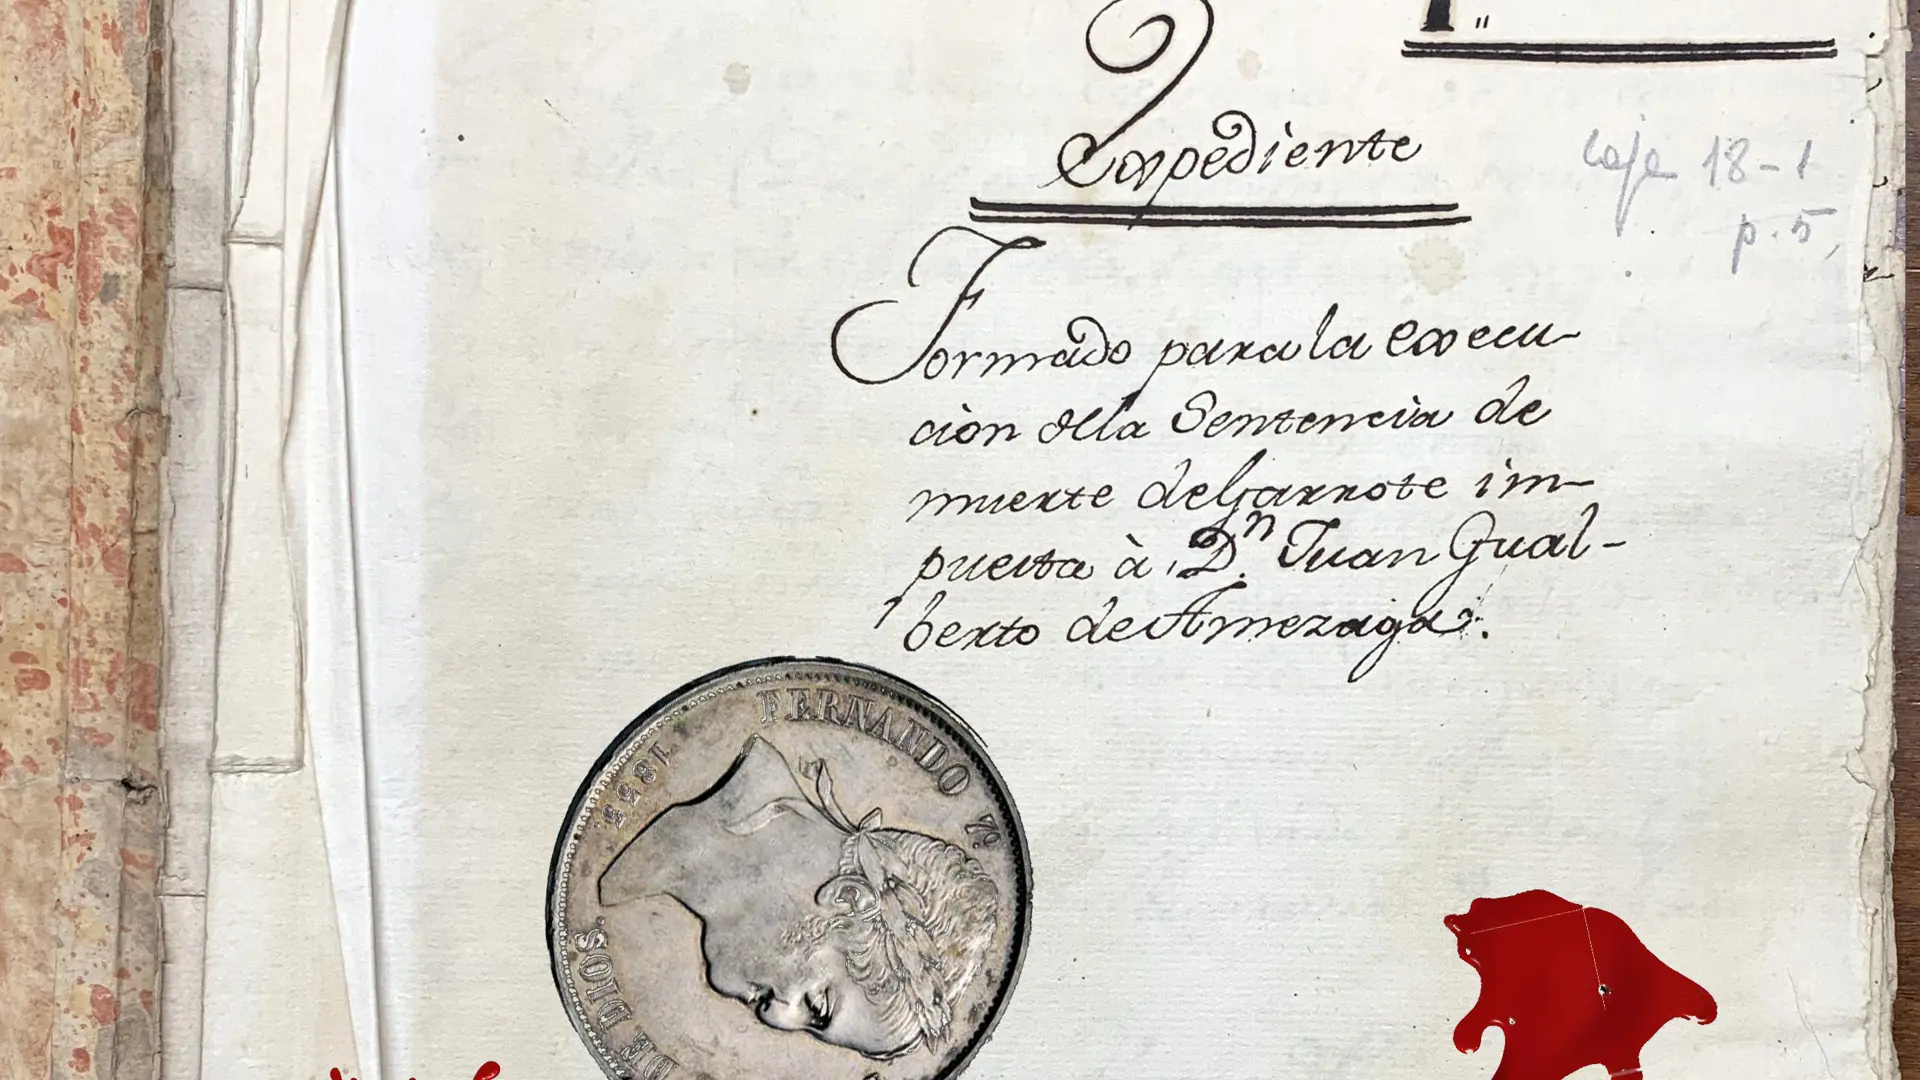 Expediente
caja 18-1
p. 5,
Formado para la execu-
cion de la Sentencia de
muerte de Garrote im-
puesta à Dn. Juan Gual-
berto de Amezaga.
FERNANDO 7o.
1833
DE DIOS.